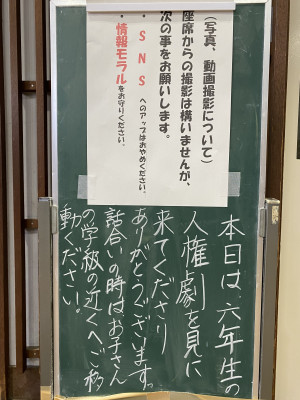 (写真、動画撮影について)
座席からの撮影は構いませんが、
次の事をお願いします。
・SNSへのアップはおやめください。
・情報モラルをお守りください。
本日は、六年生の
人権劇を見に
来てくださり
ありがとうございます。
話合いの時はお子さん
の学級の近くへご移
動ください。